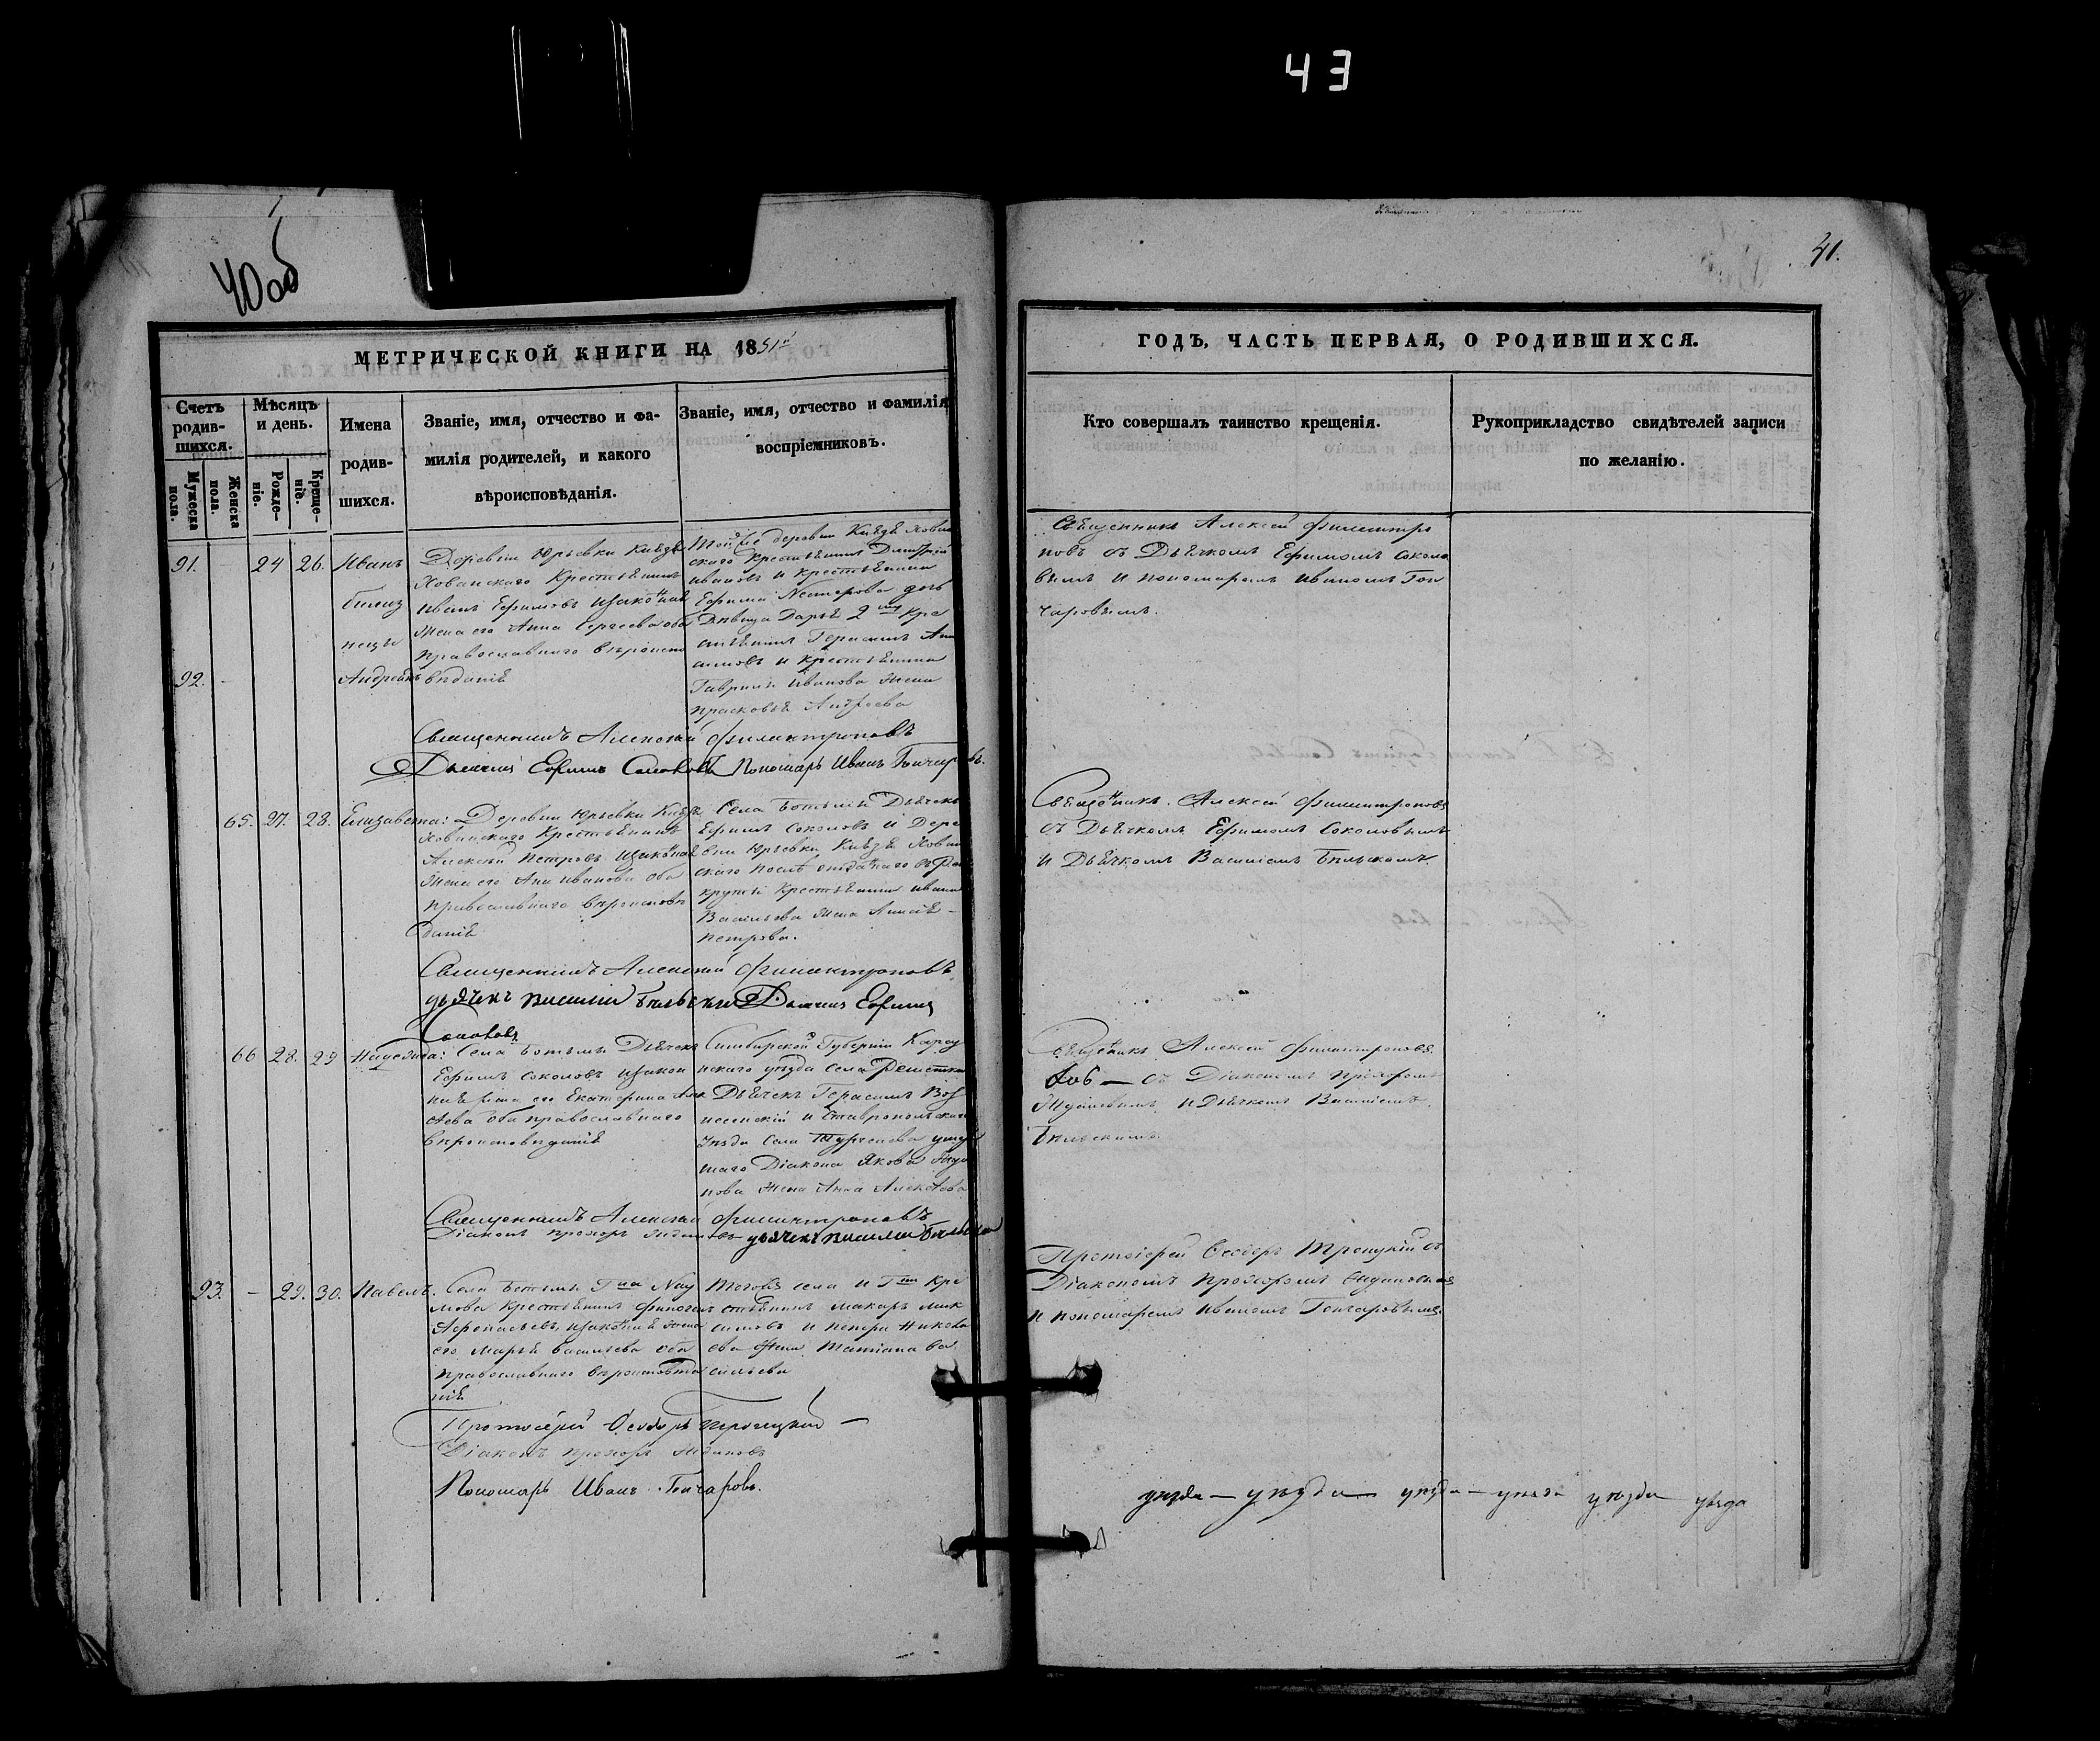 43
40об
41.
МЕТРИЧЕСКОЙ КНИГИ НА 1851й
ГОДЪ, ЧАСТЬ ПЕРВАЯ, О РОДИВШИХСЯ.
Счетъ родив-шихся.
Мужеска пола.
Женска пола.
Мѣсяцъ и день.
Рожде-ніе.
Креще-ніе.
Имена родив-шихся.
Званіе, имя, отчество и фа-
милія родителей, и какого
вѣроисповѣданія.
Званіе, имя, отчество и фамилія
воспріемниковъ.
Кто совершалъ таинство крещенія.
Рукоприкладство свидѣтелей записи
по желанію.
91. - 24 26. Иванъ
близ
нецы
92. - Андрей
Деревни Юрьевки Князя
Хованскаго Крестьянинъ
Иванъ Ефимовъ и законная
жена его Анна Сергеева оба
православнаго вѣроиспо
вѣданія
Той же деревни Князя Хован
скаго крестьянинъ Дмитрій
Ивановъ и крестьянина
Ефима Нестерова дочь
Дѣвица Дарья 2го кре
стьянинъ Герасимъ
и крестьянина
Гаврилы Иванова жена
Прасковья Андреева
Священникъ Алексей Филантро
повъ съ Дьячкомъ Ефимомъ Соколо
вымъ и пономаремъ Иваномъ Гон
чаровымъ.
Священникъ Алексей Филантроповъ
Дьячекъ Ефимъ Соколовъ Пономарь Иванъ Гончаровъ.
65. 27. 28. Елизавета:
Деревни Юрьевки Князя
Хованскаго Крестьянинъ
Алексей Петровъ и законная
жена его Анна Иванова оба
православнаго вѣроисповѣ
данія
Села Ботьмы Дьячекъ
Ефимъ Соколовъ и Дере
вни Юрьевки Князя Хован
скаго послѣ отданаго въ Ре
круты крестьянина Ивана
Васильева жена
Петрова.
Священникъ Алексей Филантроповъ
съ Дьячкомъ Ефимомъ Соколовымъ
и Дьячкомъ Василіемъ Бѣльскимъ
Священникъ Алексей Филантроповъ
дьячекъ Василій Бѣльскій Дьячекъ Ефимъ
Соколовъ
66 28. 29 Надежда:
Села Ботьмы Дьячекъ
Ефимъ Соколовъ и закон
ная жена его Екатерина Алек
сеева оба православнаго
вѣроисповѣданія
Симбирской Губерніи Карсу
нскаго уѣзда села Решетки
Дьячекъ Герасимъ Воз
несенскій и Ставропольскаго
уѣзда села умер
шаго Діакона Якова
нова жена Анна Алексеева
Священникъ Алексей Филантроповъ
съ Діакономъ Прохоромъ
Ждановымъ и Дьячкомъ Василіемъ
Бѣльскимъ.
Священникъ Алексей Филантроповъ
Діаконъ Прохоръ Ждановъ дьячекъ Василій Бѣльскій
93. - 29. 30. Павелъ.
Села Ботьмы Гна Нау
мова крестьянинъ Финогенъ
Афонасьевъ, и законная жена
его Марья Васильева оба
православнаго вѣроисповѣда
нія
Тогожъ села и Гна кре
стьянинъ Макаръ Мак
симовъ и Петра Никола
ева жена Татіана Ва
сильева
Протоіерей Ѳеодоръ Троицкій съ
Діакономъ Прохоромъ Ждановымъ
и пономаремъ Иваномъ Гончаровымъ.
Протоіерей Ѳеодоръ Троицкій —
Діаконъ Прохоръ Ждановъ
Пономарь Иванъ Гончаровъ.
уѣзда — уѣзда — уѣзда — уѣзда уѣзда уѣзда